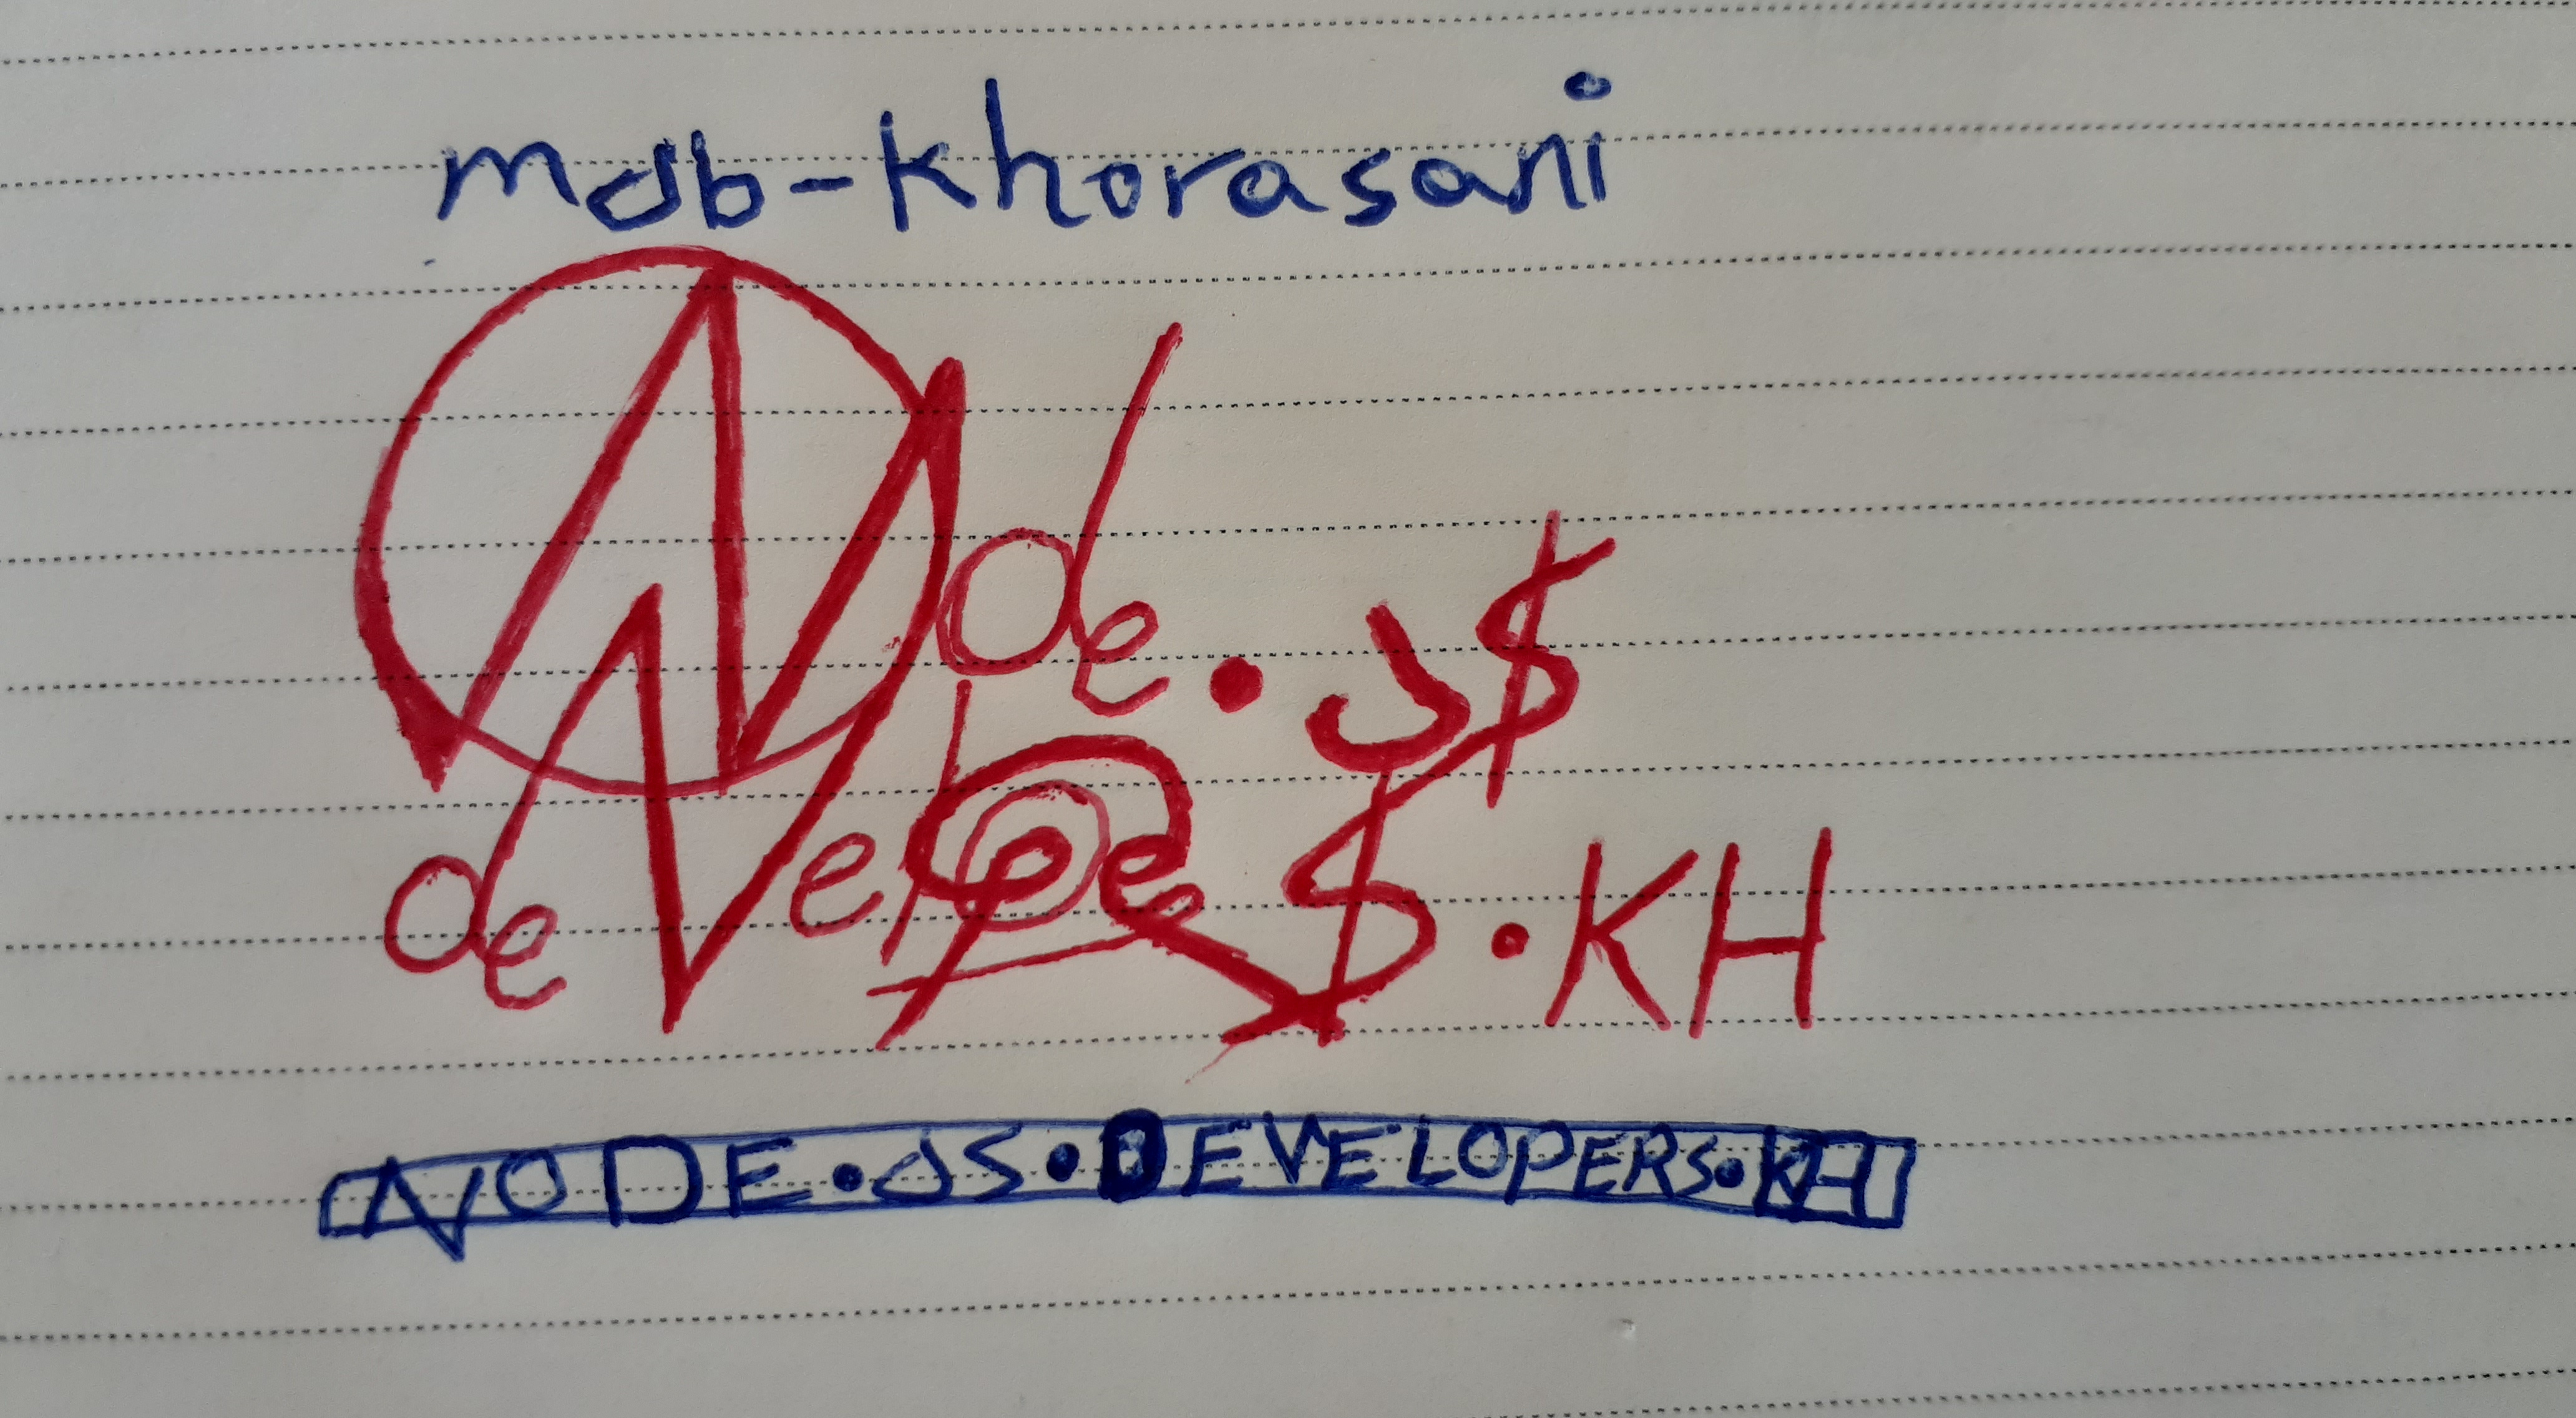 mdb-khorasani
Node.J$
deVelope$.KH
NODE.JS.DEVELOPERS.KH